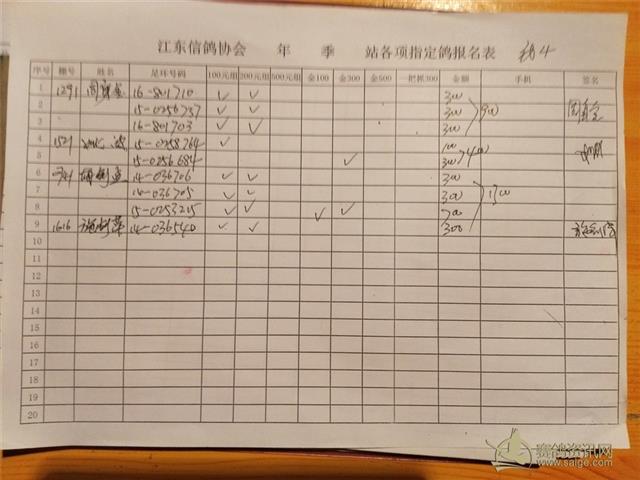 江东信鸽协会 年 季 站各项指定鸽报名表
序号 棚号 姓名 足环号码 100元组 200元组 500元组 金100 金300 金500 一把抓300 金额 手机 签名
1 1291 16-801710 ✓ ✓ 300
2 15-0256757 ✓ ✓ 300 900
3 16-801703 ✓ ✓ 300
4 1521 波 15-0258764 ✓ 100
5 15-0256684 ✓ 300 400
6 14-036706 ✓ ✓ 300
7 14-036705 ✓ ✓ 300 1300
8 15-0253205 ✓ ✓ ✓ ✓ 700
9 1616 14-036540 ✓ ✓ 300
10
11
12
13
14
15
16
17
18
19
20
赛鸽资讯网
www.saige.com